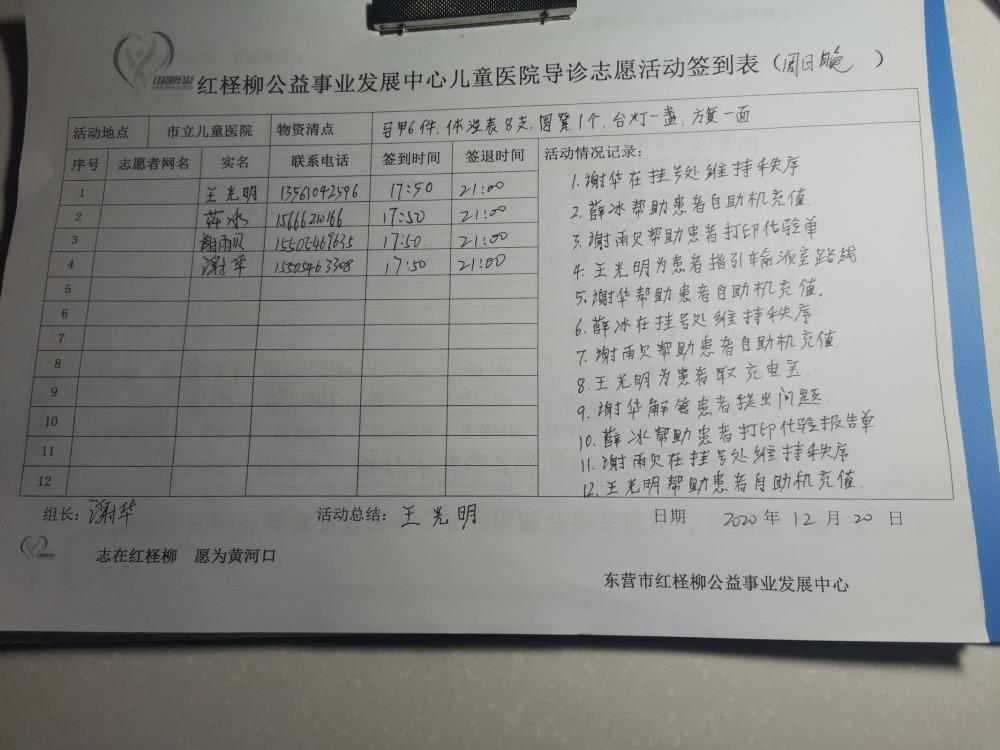 红柽柳公益
红柽柳公益事业发展中心儿童医院导诊志愿活动签到表（周日晚）
活动地点 市立儿童医院 物资清点 马甲6件.体温表8支.圆凳1个.台灯一盏.方复一面
序号 志愿者网名 实名 联系电话 签到时间 签退时间 活动情况记录：
1 王光明 13561042596 17:50 21:00
2 薛冰 15666210166 17:50 21:00
3 谢雨贝 17:50 21:00
4 谢华 15505463308 17:50 21:00
5
6
7
8
9
10
11
12
1.谢华在挂号处维持秩序
2.薛冰帮助患者自助机充值.
3.谢雨贝帮助患者打印化验单
4.王光明为患者指引输液室路线.
5.谢华帮助患者自助机充值.
6.薛冰在挂号处维持秩序
7.谢雨贝帮助患者自助机充值.
8.王光明为患者取充电宝.
9.谢华解答患者提出问题.
10.薛冰帮助患者打印化验报告单
11.谢雨贝在挂号处维持秩序
12.王光明帮助患者自助机充值.
组长：谢华 活动总结：王光明 日期 2020年12月20日
志在红柽柳 愿为黄河口
东营市红柽柳公益事业发展中心